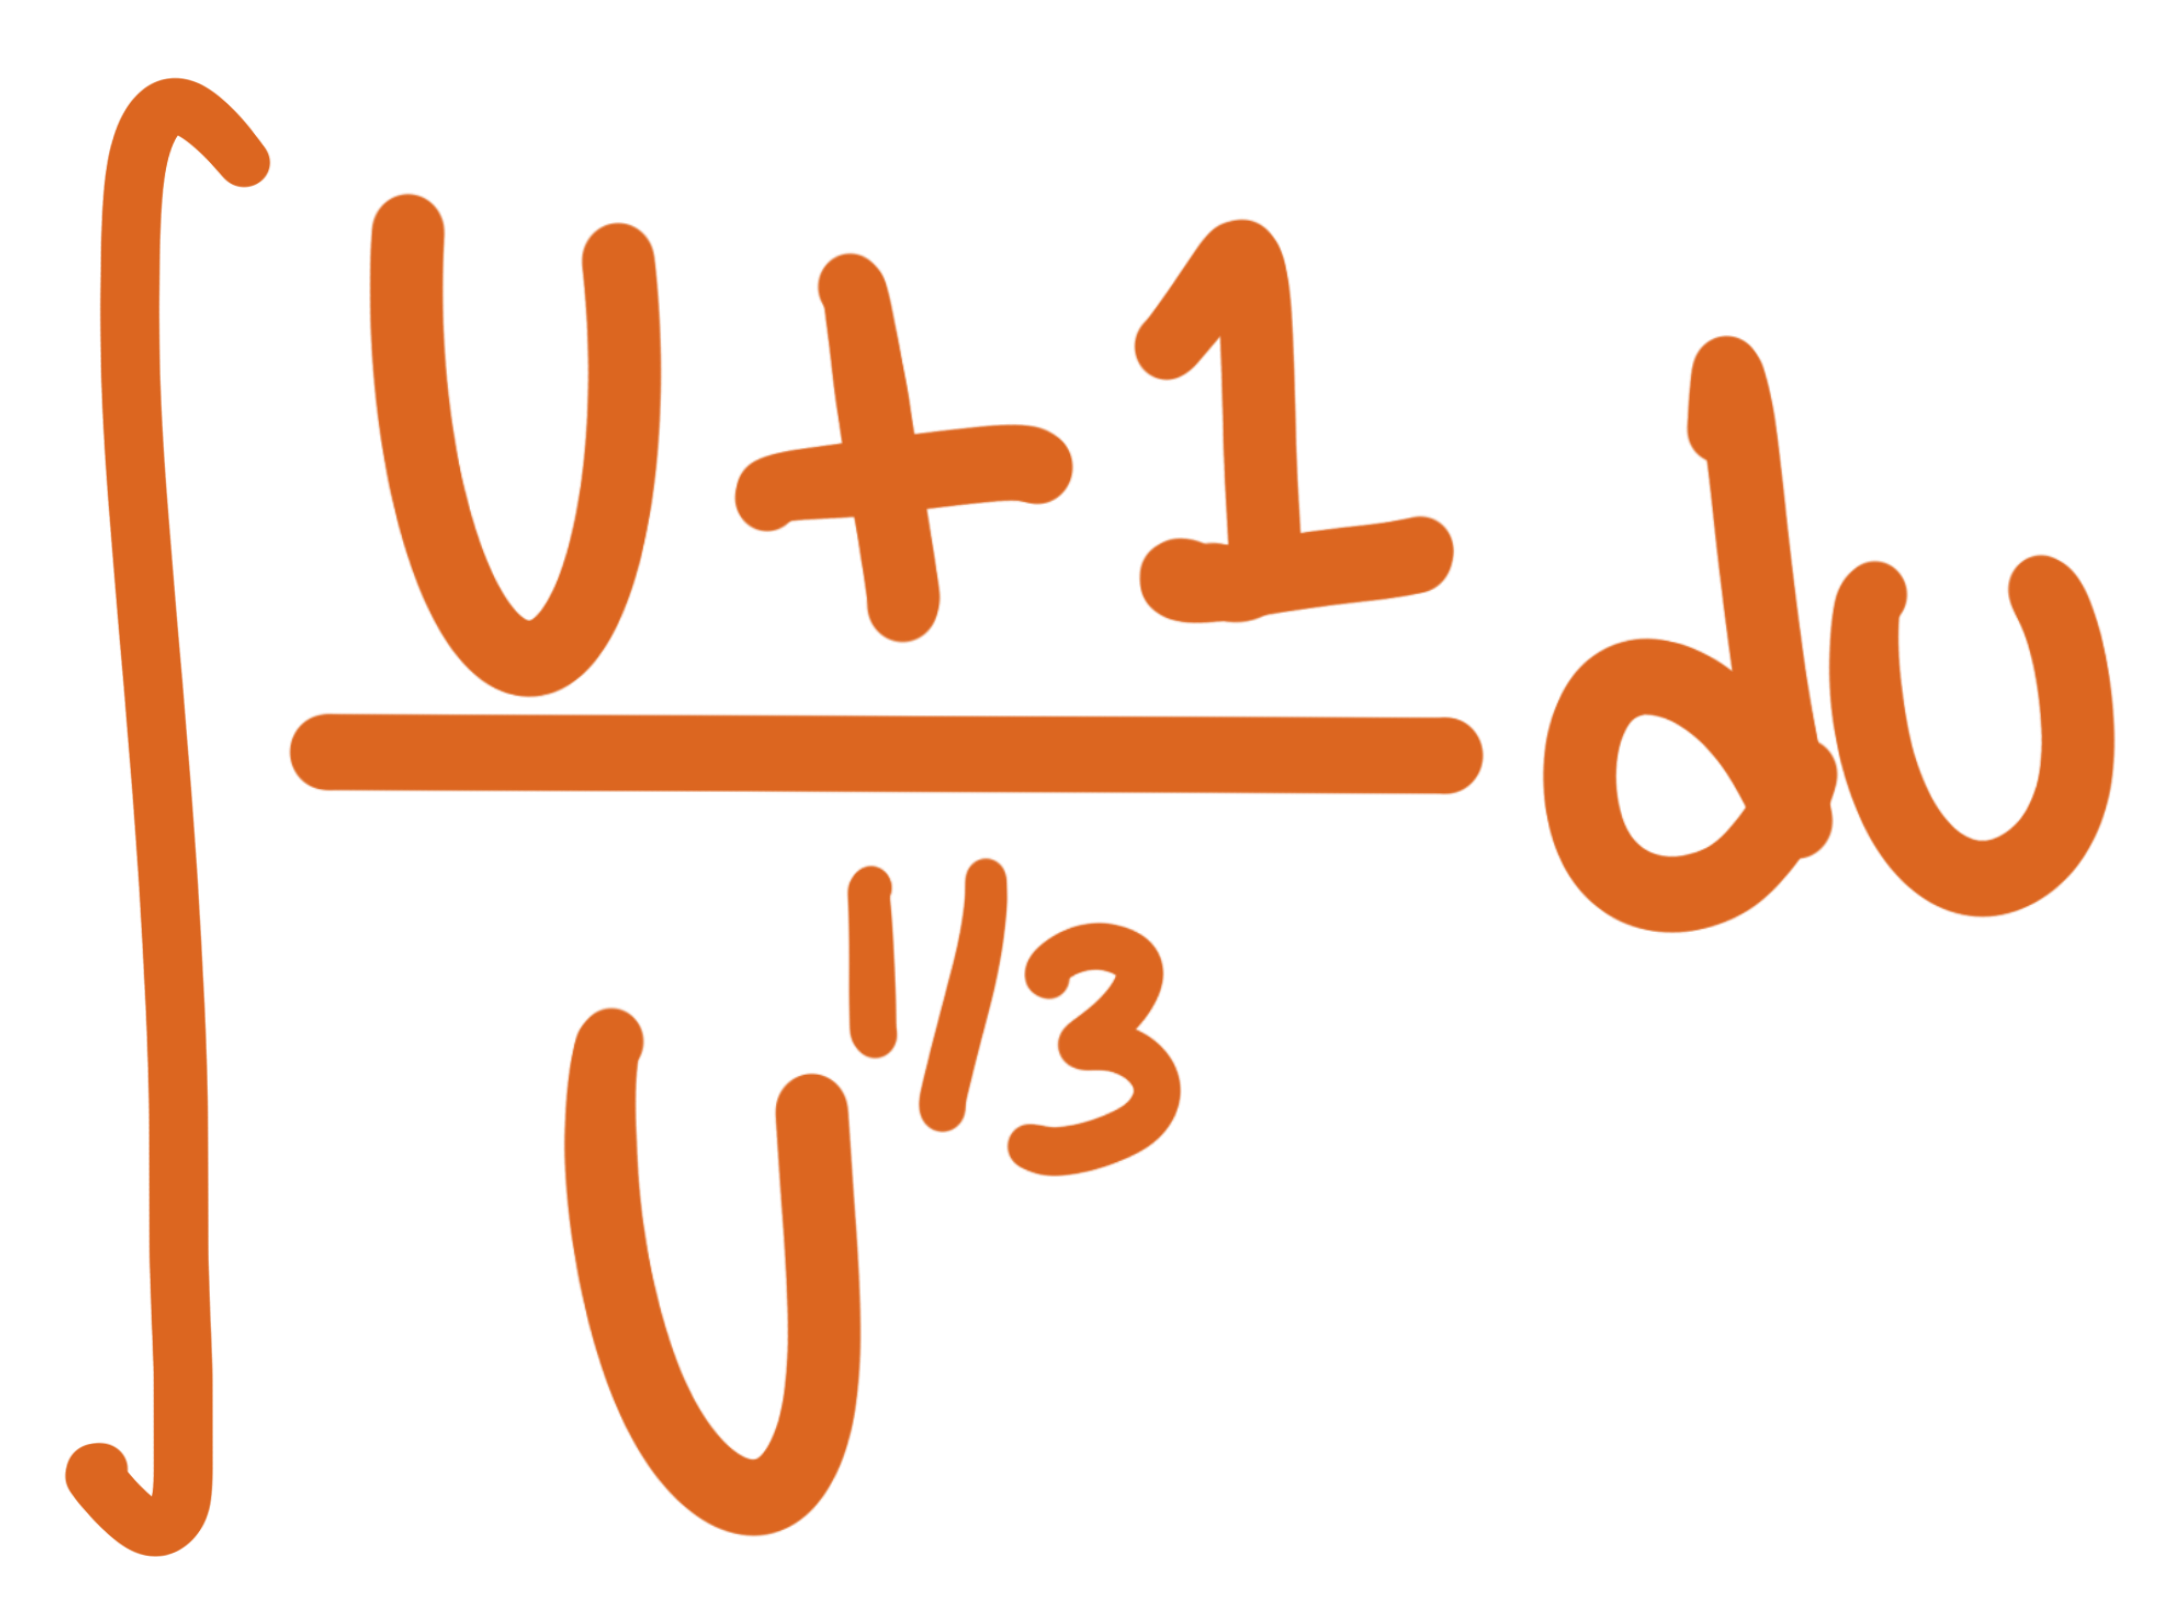 ∫ U+1 / U^1/3 du